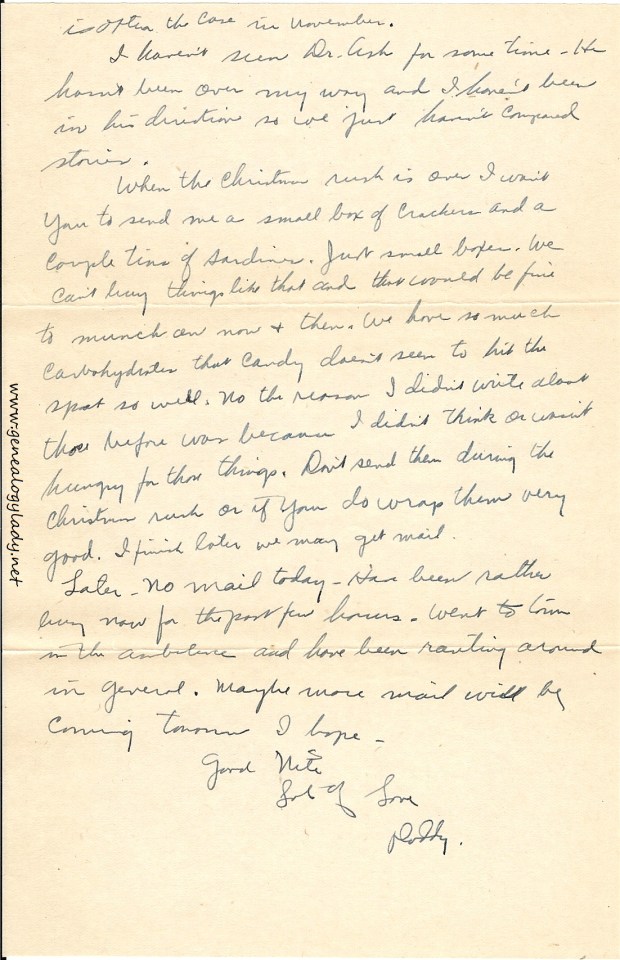 is often the case in November.
I haven't seen Dr. Ash for some time - He
hasn't been over my way and I haven't been
in his direction so we just haven't compared
stories.
When the Christmas rush is over I want
you to send me a small box of crackers and a
couple tins of sardines. Just small boxes. We
can't buy things like that and that would be fine
to munch on now + then. We have so much
carbohydrates that candy doesn't seem to hit the
spot so well. No the reason I didn't write about
those before was because I didn't think or wasn't
hungry for those things. Don't send them during the
Christmas rush or if you do wrap them very
good. I finish later we may get mail.
Later - No mail today - Have been rather
busy now for the past few hours. Went to town
in the ambulance and have been ranting around
in general. Maybe more mail will be
coming tomorrow I hope -
Good Nite
Lot of Love
Daddy.
www.genealogylady.net